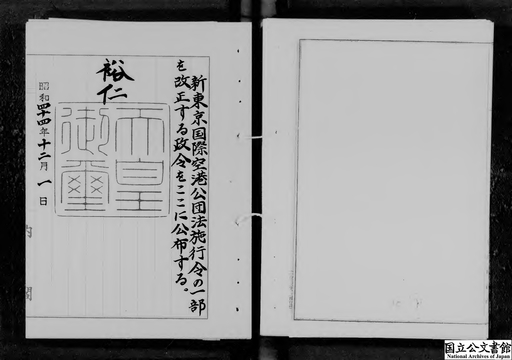 新東京国際空港公団法施行令の一部
を改正する政令をここに公布する。
裕仁
天皇
御璽
昭和四十四年十二月一日
内閣
国立公文書館
National Archives of Japan